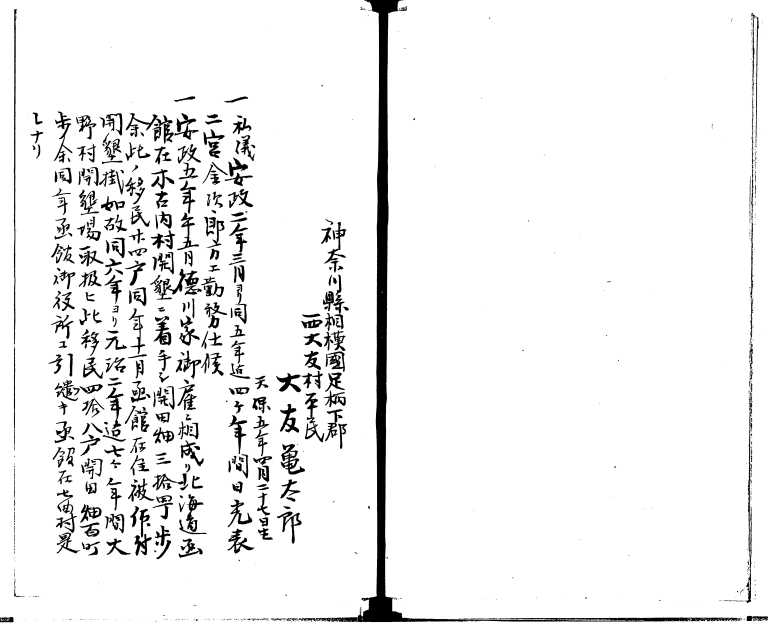 神奈川縣相模國足柄下郡
西大友村平民
大友亀太郎
天保五年四月二十七日生
一私儀安政二年三月ヨリ同五年迠四ケ年間日光表
二宮金次郎方エ勤務仕候
一安政五年午五月徳川家御雇ニ相成リ北海道函
館在木古内村開墾ニ着手シ開田畑三拾町歩
余此ノ移民廿四戸同年十一月函館在住被仰付
開墾掛如故同六年ヨリ元治二年迠七ケ年間大
野村開墾場取扱ヒ此移民四拾八戸開田畑百町
歩余同年函館御役所エ引繼キ函館在七重村是
レナリ